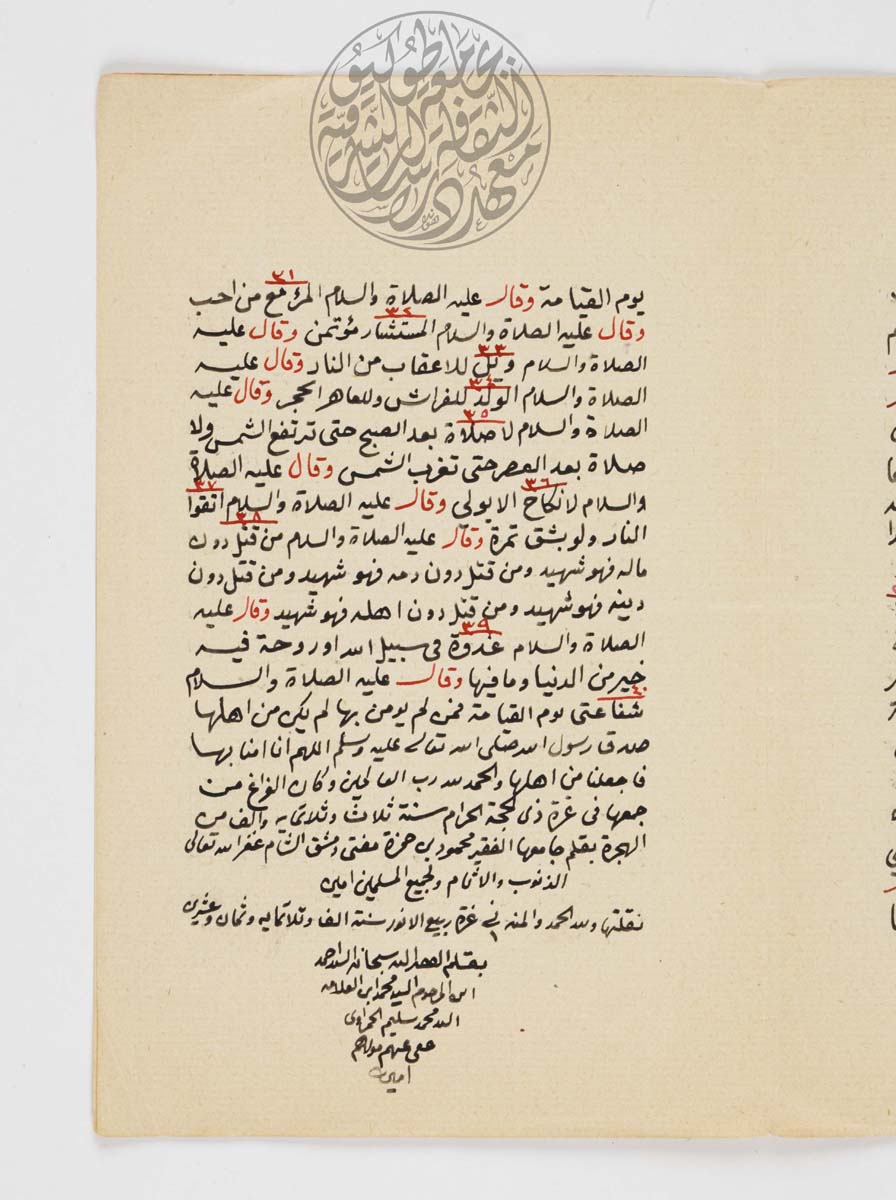 جامعة طوكيو
معهد دراسات الثقافة الشرقية
٣١
يوم القيامة وقال عليه الصلاة والسلام المرء مع من احب
٣٢
وقال عليه الصلاة والسلام المستشار مؤتمن وقال عليه
٣٣
الصلاة والسلام ويل للاعقاب من النار وقال عليه
٣٤
الصلاة والسلام الولد للفراش وللعاهر الحجر وقال عليه
٣٥
الصلاة والسلام لا صلاة بعد الصبح حتى ترتفع الشمس ولا
صلاة بعد العصر حتى تغرب الشمس وقال عليه الصلاة
٣٦ ٣٧
والسلام لا نكاح الا بولي وقال عليه الصلاة والسلام اتقوا
٣٨
النار ولو بشق تمرة وقال عليه الصلاة والسلام من قتل دون
ماله فهو شهيد ومن قتل دون دمه فهو شهيد ومن قتل دون
دينه فهو شهيد ومن قتل دون اهله فهو شهيد وقال عليه
٣٩
الصلاة والسلام غدوة في سبيل الله او روحة فيه
خير من الدنيا وما فيها وقال عليه الصلاة والسلام
٤٠
شفاعتى يوم القيامة فمن لم يومن بها لم يكن من اهلها
صدق رسول الله صلى الله تعالى عليه وسلم اللهم انا امنا بها
فاجعلنا من اهلها والحمد لله رب العالمين وكان الفراغ من
جمعها في غرة ذى الحجة الحرام سنة ثلاث وثلاثمايه والف من
الهجرة بقلم جامعها الفقير محمود بن حمزة مفتى دمشق الشام غفر الله تعالى
الذنوب والاثام ولجميع المسلمين امين
نقلتها ولله الحمد والمنه في غرة ربيع الانور سنة الف وثلاثمايه وثمان وعشرين
بقلم الفقير اليه سبحانه السيد احمد
ابن المرحوم السيد محمد ابن العلامه
السيد محمد سليم الحمزاوى
عفى عنهم مولاهم
امين